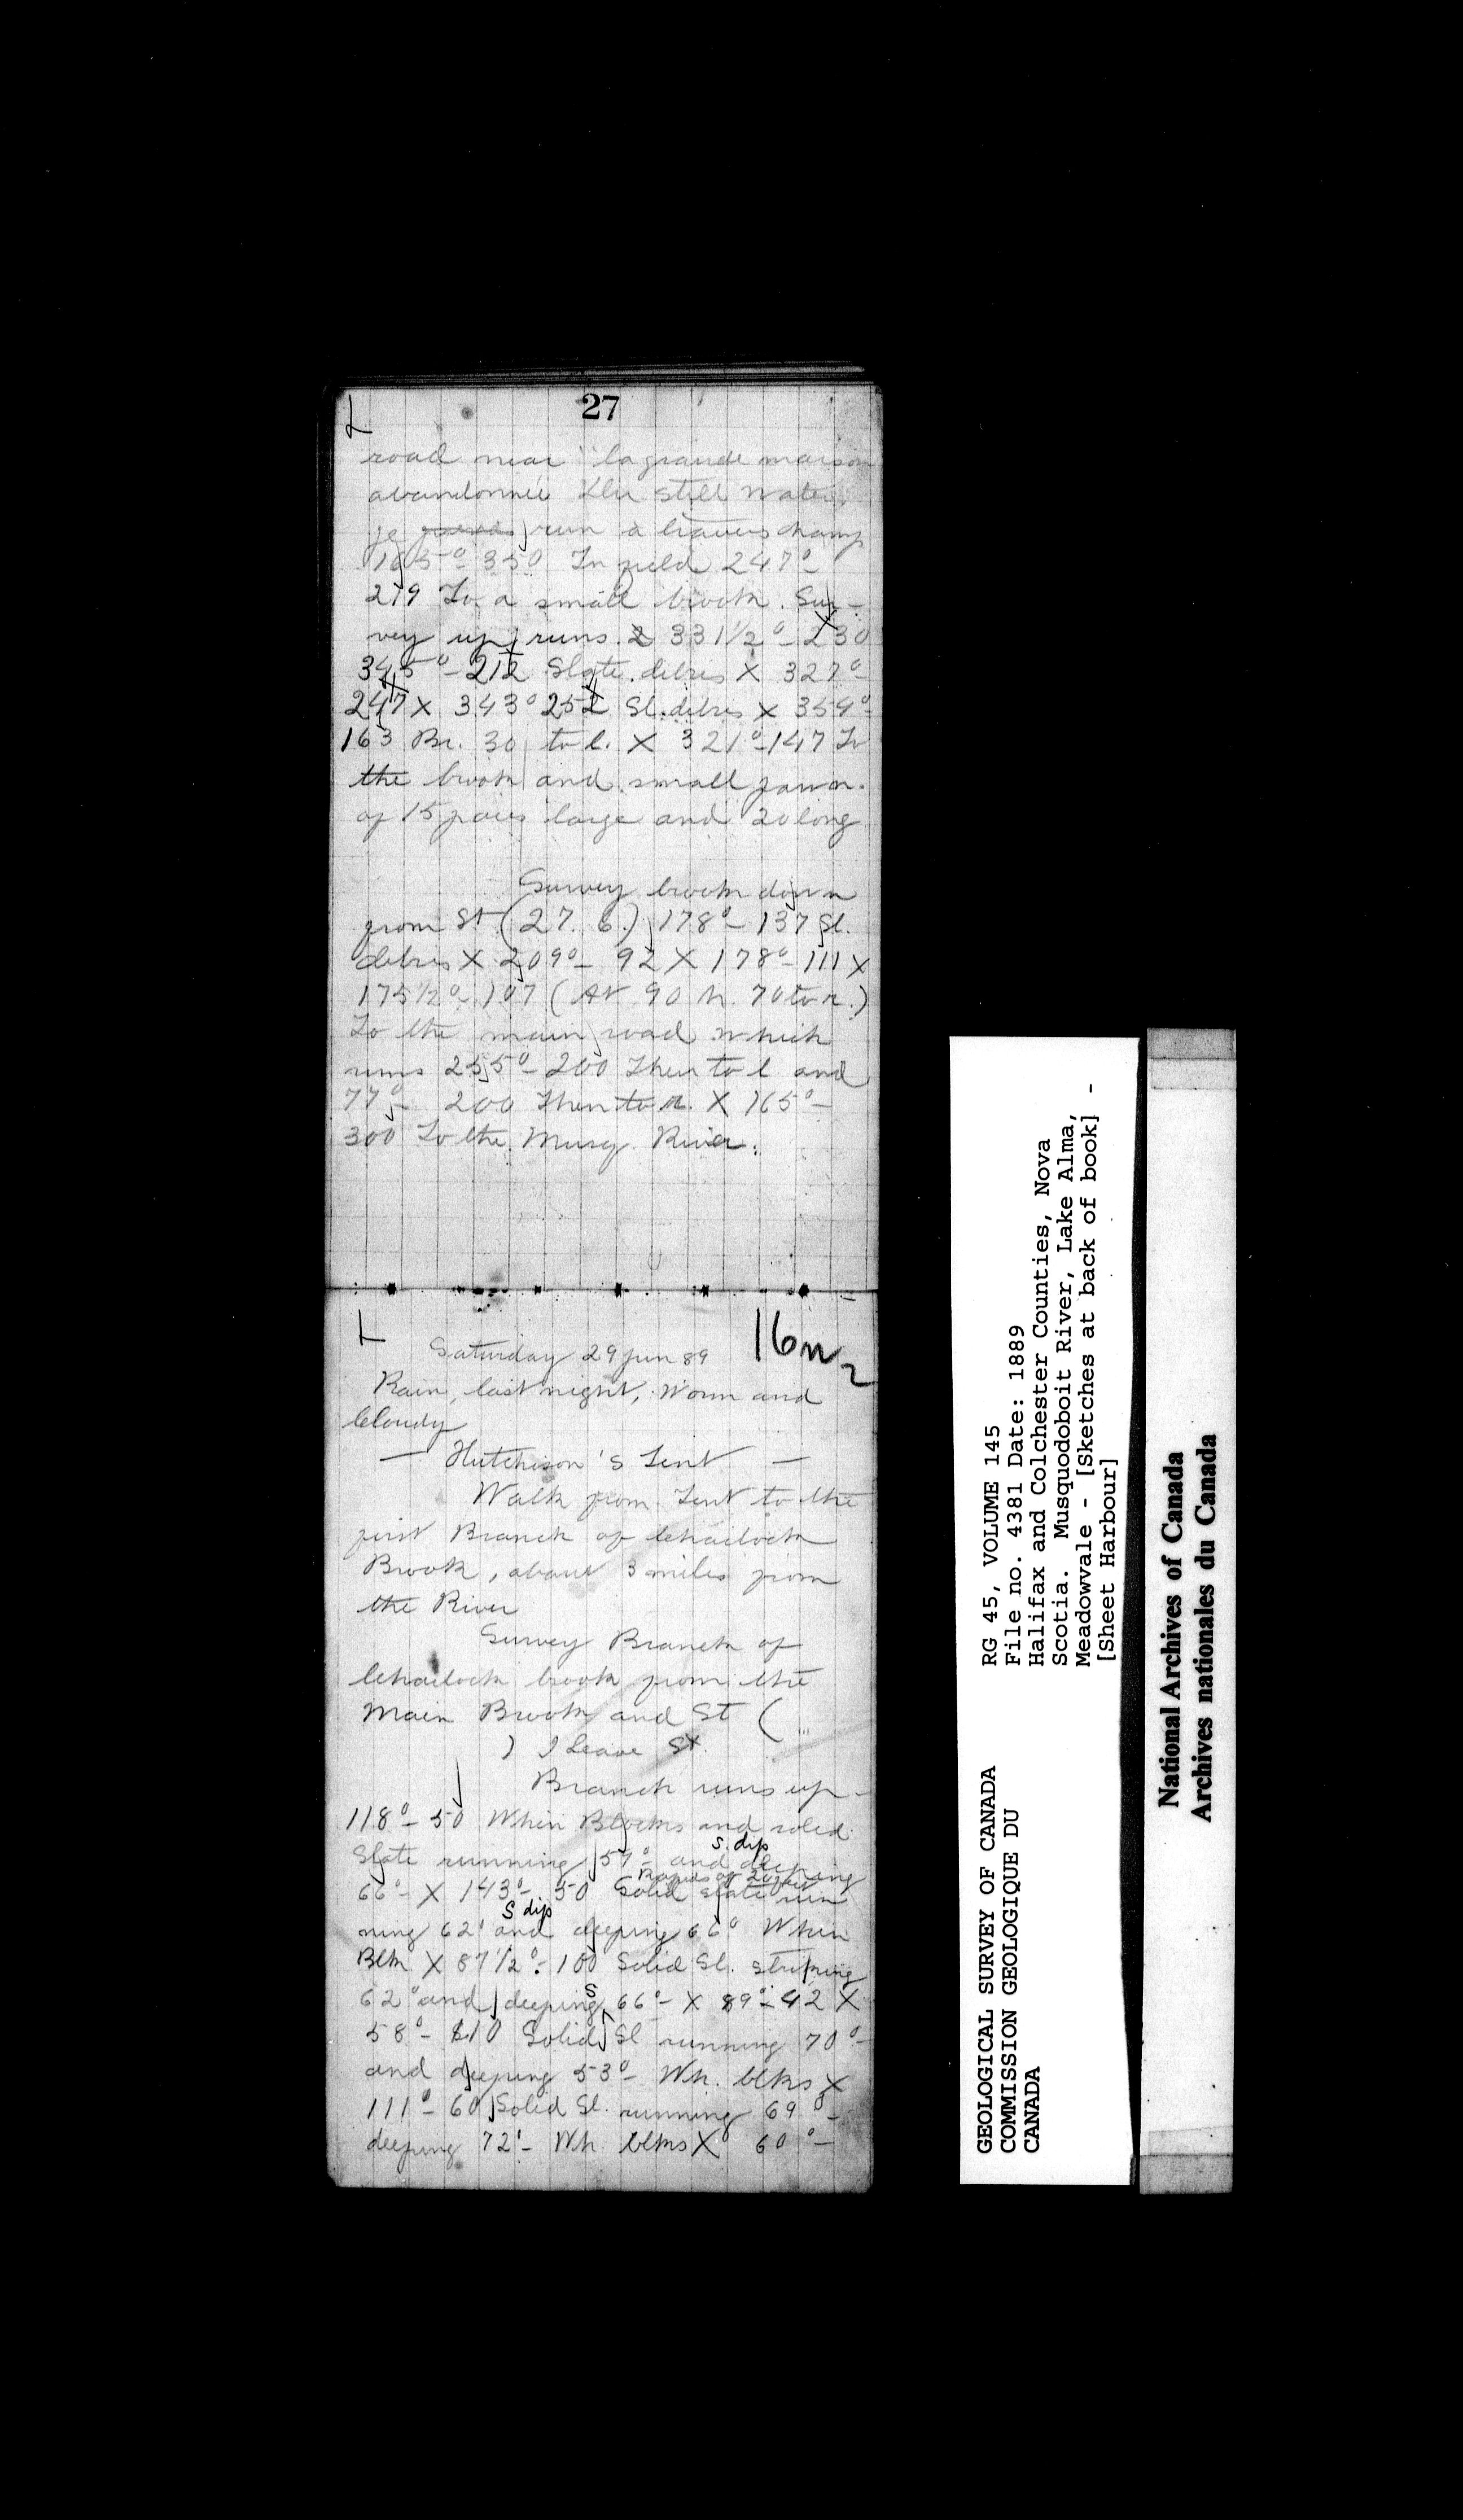 27
road near "la grande maison
abandonnée
165°- 350 In field 247°-
219 To a small brook. Sur-
vey up runs. 331 1/2°- 230
345°- 212 Slate. debris X 327°-
247 X 343° 252 Sl. debris X 354°-
163 Br. 30 to l. X 321°-147 To
the brook and small
of 15 paces large and 20 long
Survey brook down
from St (27. 6.) 178°- 137 Sl.
debris X 209°- 92 X 178°- 111 X
175 1/2°- 107 (At 90 h. 70 to r.)
To the main road which
runs 255°- 200 Then to l and
77°- 200 Then to r. X 165°-
300 To the Musq River.
16
Saturday 29 Jun 89
Rain, last night, Worm and
Cloudy
— Hutchison's Tent —
Walk from Tent to the
first Branch of
Brook, about 3 miles from
the River
Survey Branch of
brook from the
Main Brook and St (
) I Leave St.
Branch runs up-
118°- 50 Whin Blocks and solid
S. dip
Slate running 57°- and deeping
Rapids of 20 feet
66°- X 143°- 50 Solid slate run
S dip
ning 62° and deeping 66° Whin
Blk X 87 1/2°- 100 Solid Sl. striking
S
62° and deeping 66°- X 89°- 42 X
58°- 110 Solid Sl running 70°-
and deeping 53°- Wh. blks X
111°- 60 Solid Sl. running 69°-
deeping 72°- Wh. blks X 60°-
GEOLOGICAL SURVEY OF CANADA
COMMISSION GEOLOGIQUE DU
CANADA
RG 45, VOLUME 145
File no. 4381 Date: 1889
Halifax and Colchester Counties, Nova
Scotia. Musquodoboit River, Lake Alma,
Meadowvale - [Sketches at back of book] -
[Sheet Harbour]
National Archives of Canada
Archives nationales du Canada